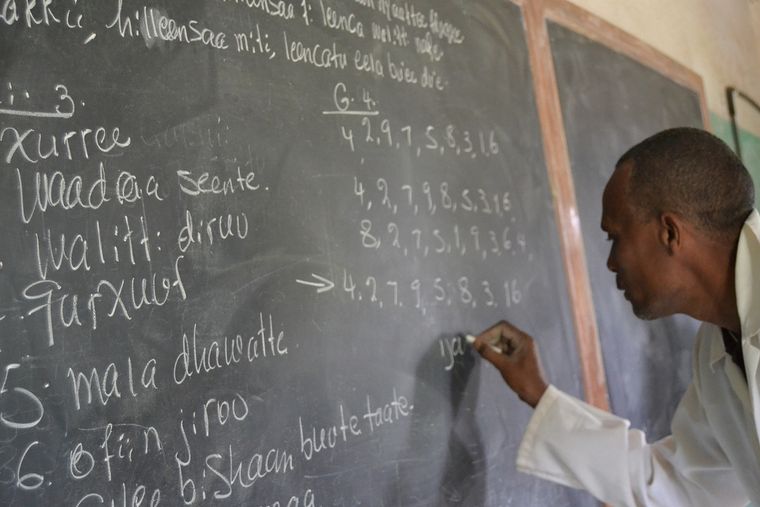 hilleensaa miti, leencatu eela buee du'e.
3.
xurree
Waadaa seente.
walitti diruu
qurxuuf
5. mala dhawatte
6. ofiin jiruu
bishaan buute taate.
G. 4.
4, 2, 9, 7, 5, 8, 3, 1, 6
4, 2, 7, 9, 8, 5, 3, 1, 6
8, 2, 7, 5, 1, 9, 3, 6, 4
→ 4, 2, 7, 9, 5, 8, 3, 1, 6
ya